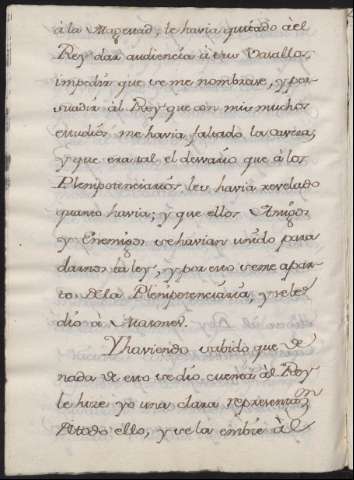 à la Magestad, le havia quitado à el
Rey dar audiencia à sus Vasallos,
impedir que se me nombrase, y per-
suadir àl Rey que con mis muchos
estudios me havia faltado la caveza,
y que era tal el desvario que à los
Plenipotenciarios les havia revelado
quanto havia; y que ellos Amigos
y Enemigos se havian unido para
darnos la ley, y por eso se me apar-
to de la Plenipotenciaria, y se le
dio à
Y haviendo savido que de
nada de esto se dio cuenta àl Rey
le hize yo una clara representaon
de todo ello, y se la embie à